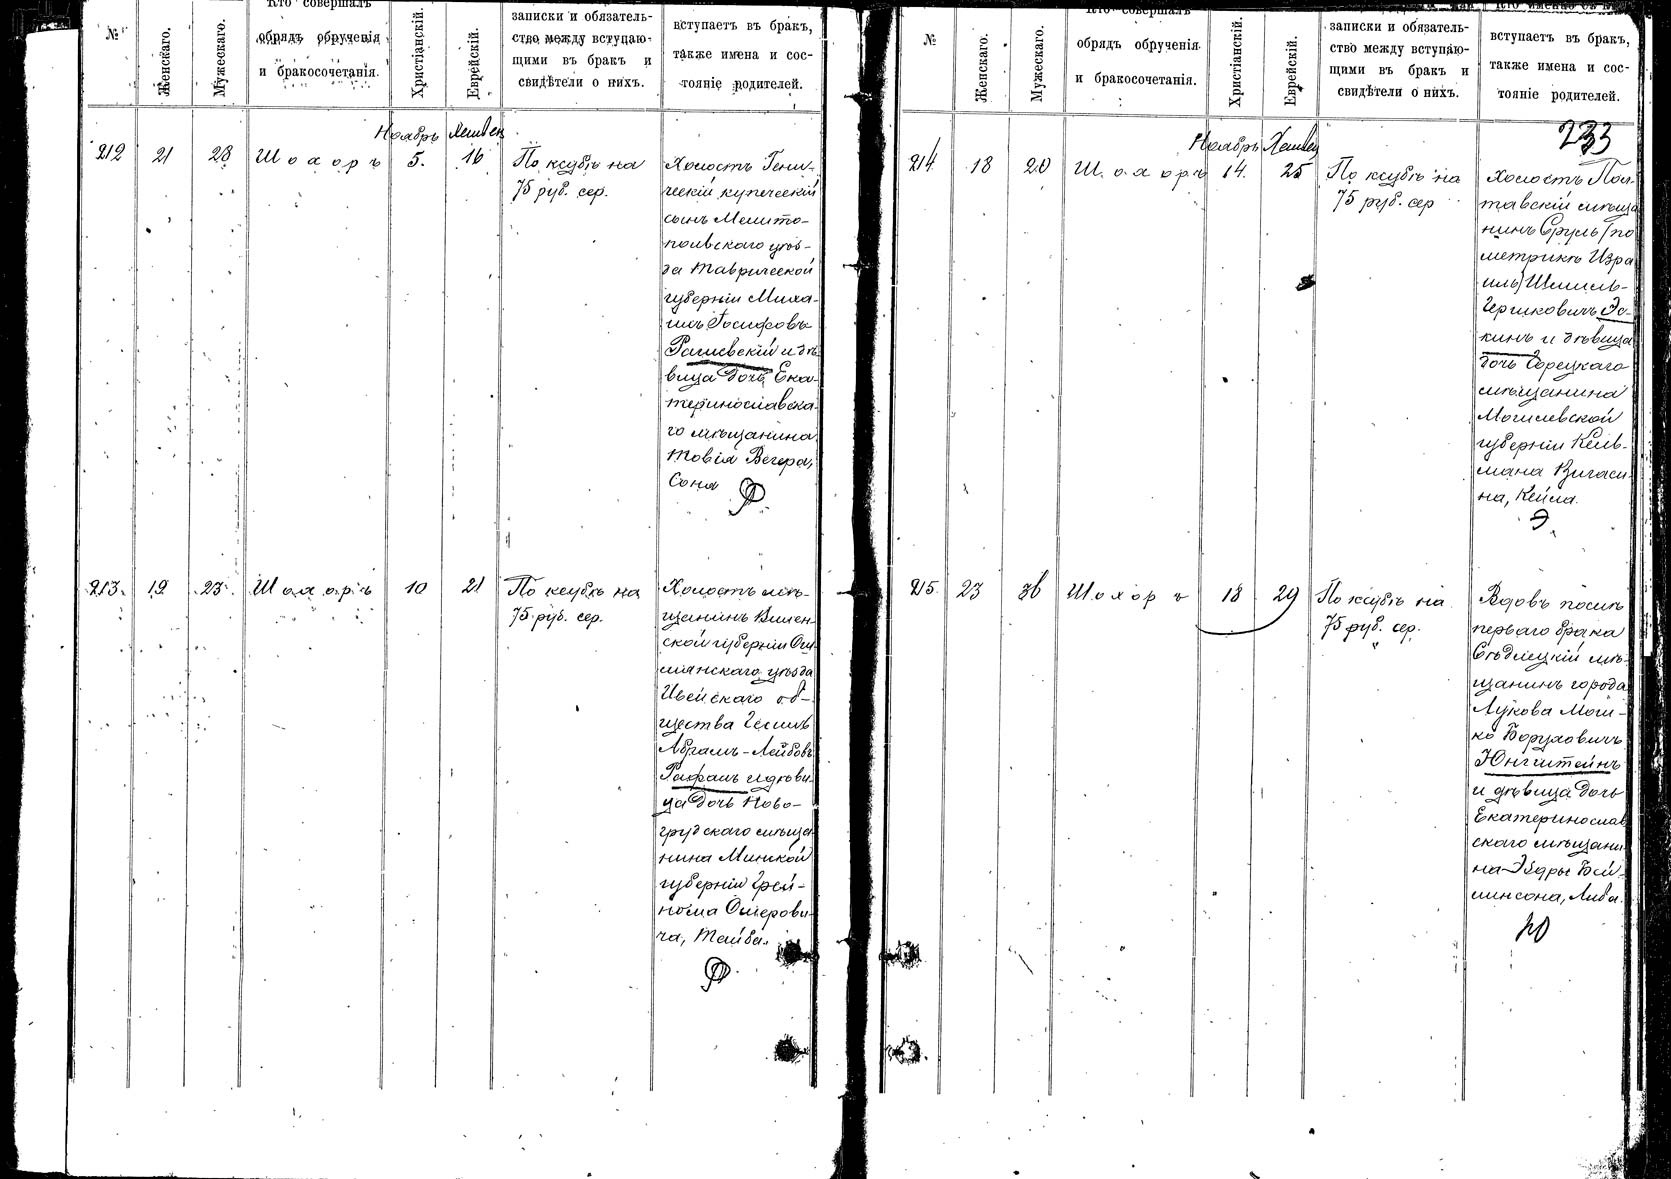 №
Женскаго.
Мужескаго.
Кто совершалъ
обрядъ обрученія
и бракосочетанія.
Христіанскій.
Еврейскій.
записки и обязатель-
ство между вступаю-
щими въ бракъ и
свидѣтели о нихъ.
вступаетъ въ бракъ,
также имена и сос-
тояніе родителей.
Ноябрь Хешвен
212 21 28 Шохоръ 5. 16
По ксубѣ на
75 руб. сер.
Холостъ Гени-
ческій купеческій
сынъ Мелито-
польскаго уѣз-
да Таврической
губерніи Миха-
илъ Іосифовъ
и дѣ-
вица дочь Ека-
теринославска-
го мѣщанина
Товія Вегера,
Соня
213. 19 23. Шохоръ 10 21
По ксубѣ на
75 руб. сер.
Холостъ мѣ-
щанинъ Вилен-
ской губерніи Ош-
мянскаго уѣзда
Ивейскаго об-
щества
Абрамъ-Лейбовъ
и дѣви-
ца дочь Ново-
грудскаго мѣща-
нина Минской
губерніи
Ошерови-
ча, Тайба.
№
Женскаго.
Мужескаго.
Кто совершалъ
обрядъ обрученія
и бракосочетанія.
Христіанскій.
Еврейскій.
записки и обязатель-
ство между вступаю-
щими въ бракъ и
свидѣтели о нихъ.
вступаетъ въ бракъ,
также имена и сос-
тояніе родителей.
233
Ноябрь Хешвен
214 18 20 Шохоръ 14. 25
По ксубѣ на
75 руб. сер
Холостъ Пол-
тавскій мѣща
нинъ Сруль (по
метрикѣ Изра
иль) Шмиль-
Гершковичъ Эс-
кинъ и дѣвица
дочь Горецкаго
мѣщанина
Могилевской
губерніи Кель-
мана
на, Кейла.
Э
215. 23 36 Шохоръ 18 29
По ксубѣ на
75 руб. сер.
Вдовъ послѣ
перваго брака
Сѣдлецкій мѣ-
щанинъ города
Лукова Мош-
ко Боруховичъ
Юнгштейнъ
и дѣвица дочь
Екатеринослав
скаго мѣщани-
на
Либа.
Ю